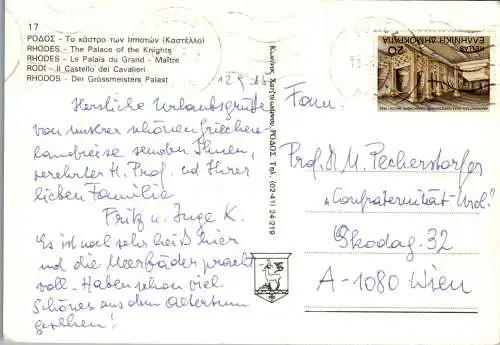 17
ΡΟΔΟΣ - Το κάστρο των Ιπποτών (Καστέλλο)
RHODES - The Palace of the Knights
RHODES - Le Palais du Grand - Maître
RODI - Il Castello dei Cavalieri
RHODOS - Der Grossmeisters Palast
Herzliche Urlaubsgrüße
von unserer schönen Griechen-
landreise senden Ihnen,
verehrter H. Prof. ud Ihrer
lieben Familie
Fritz u. Inge K.
Es ist noch sehr heiß hier
und die Meerbäder pracht-
voll. Haben schon viel
Schönes aus dem Altertum
gesehen!
ΡΟΔΟΣ Τηλ. (02-41) 24-219
ΕΛΛΗΝΙΚΗ ΔΗΜΟΚΡΑΤΙΑ
HELLAS
20
Fam.
Prof. Dr M. Pecherstorfer
"Confraternität-Priv."
Skodag. 32
A-1080 Wien